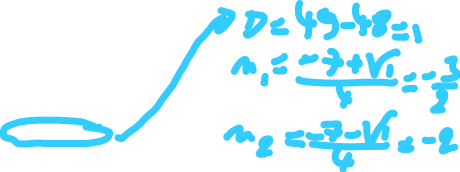 D=49-48=1
n₁=(-7+√1)/4=-3/2
n₂=(-7-√1)/4=-2